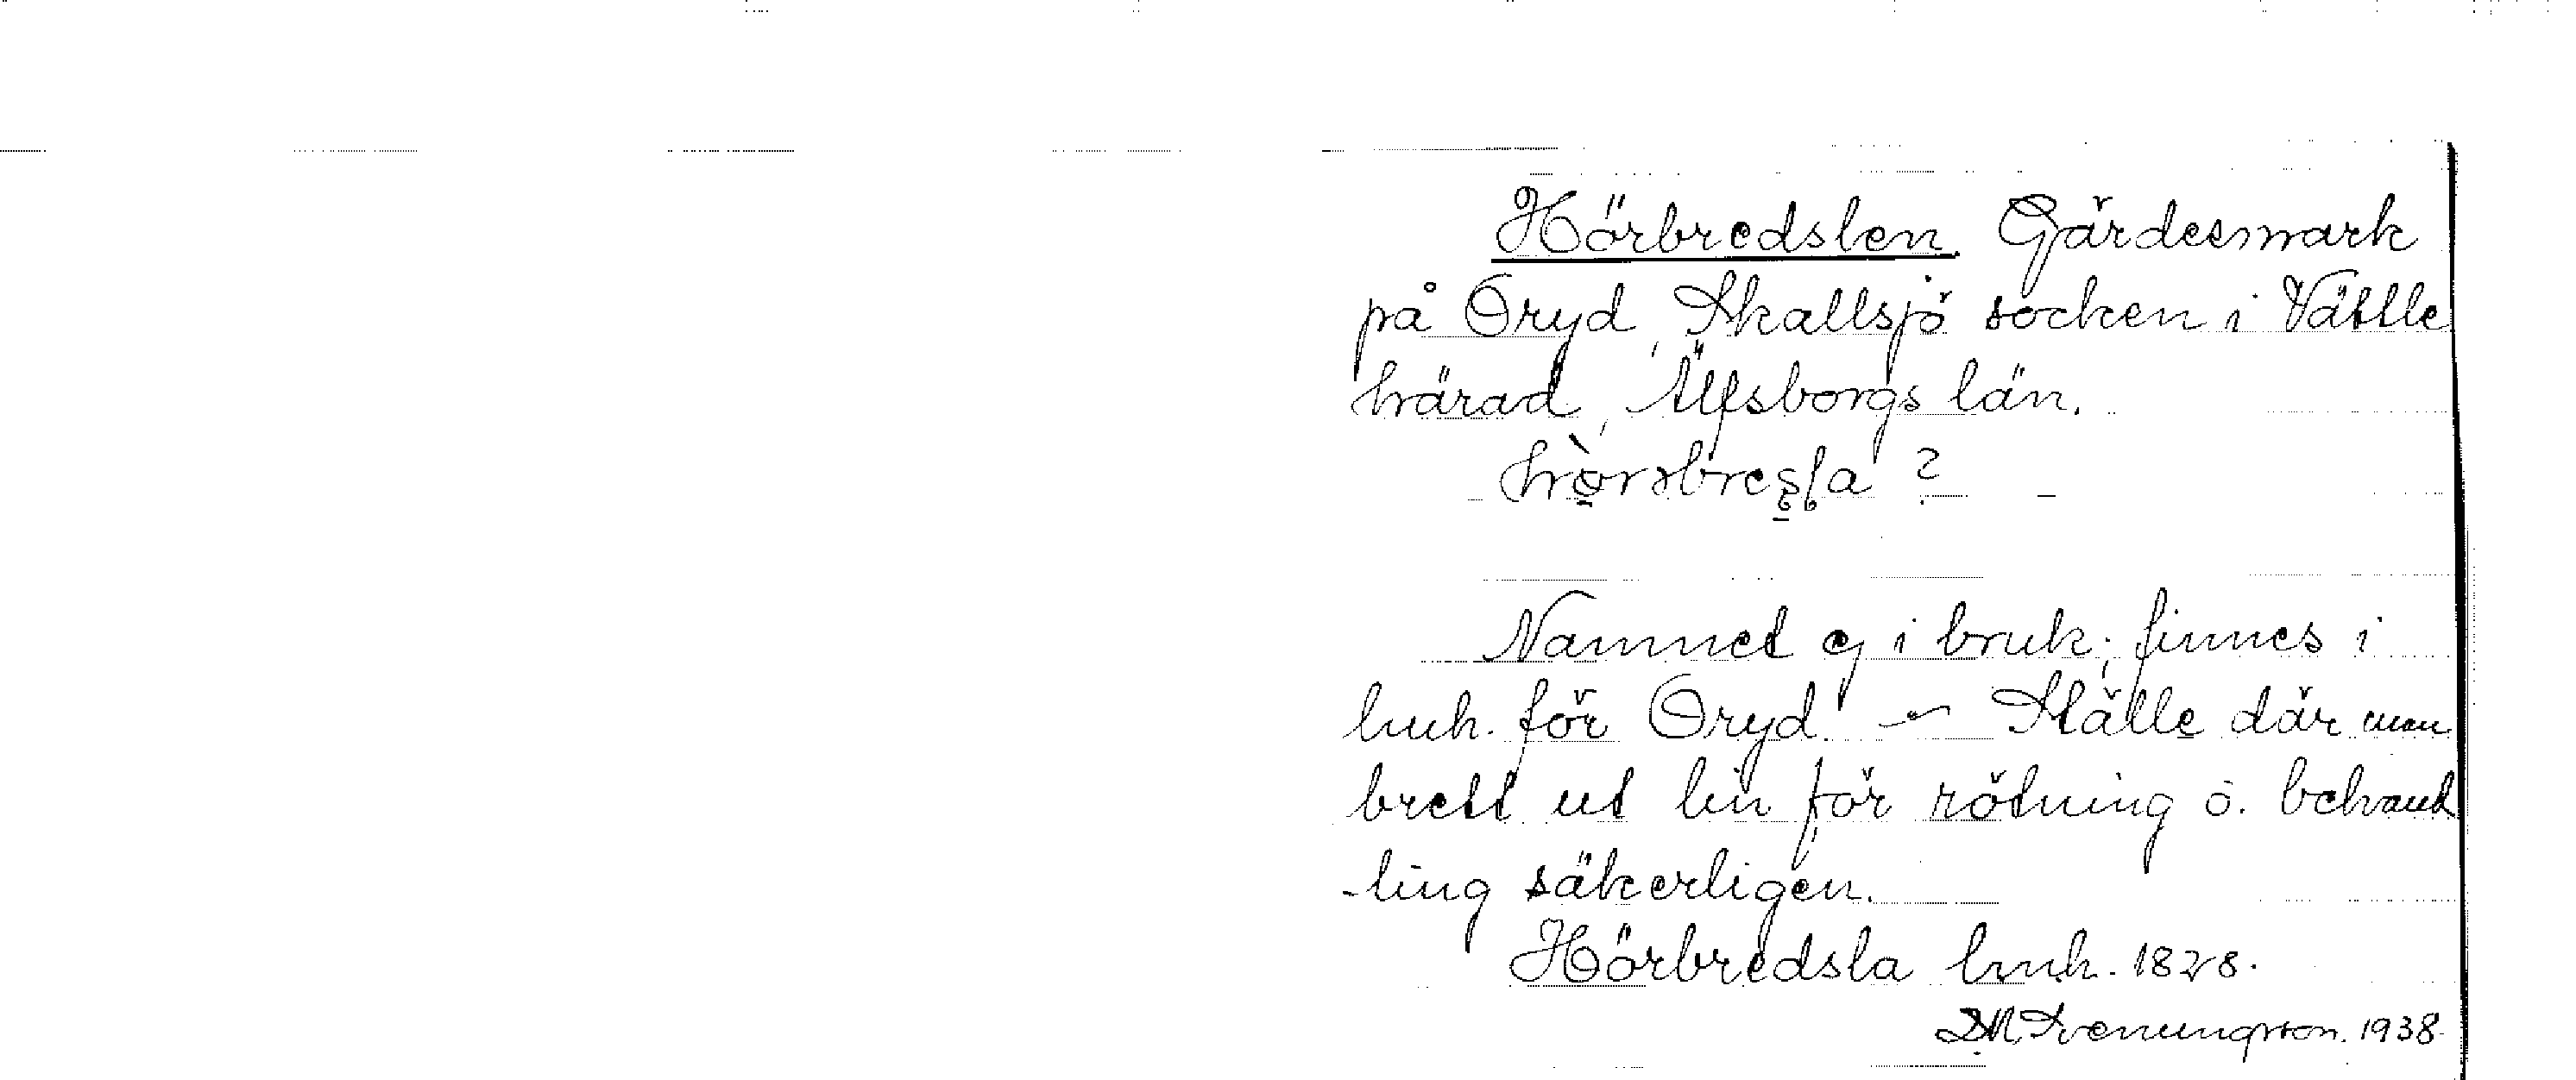 Hörbredslen. Gärdesmark
på Öryd, Skallsjö socken i Vättle
härad, Älfsborgs län.
Namnet ej i bruk; finnes i
lmh. för Öryd. — Ställe där man
brett ut lin för rötning o. behand
-ling säkerligen.
Hörbredsla lmh. 1828.
Svenungsson. 1938